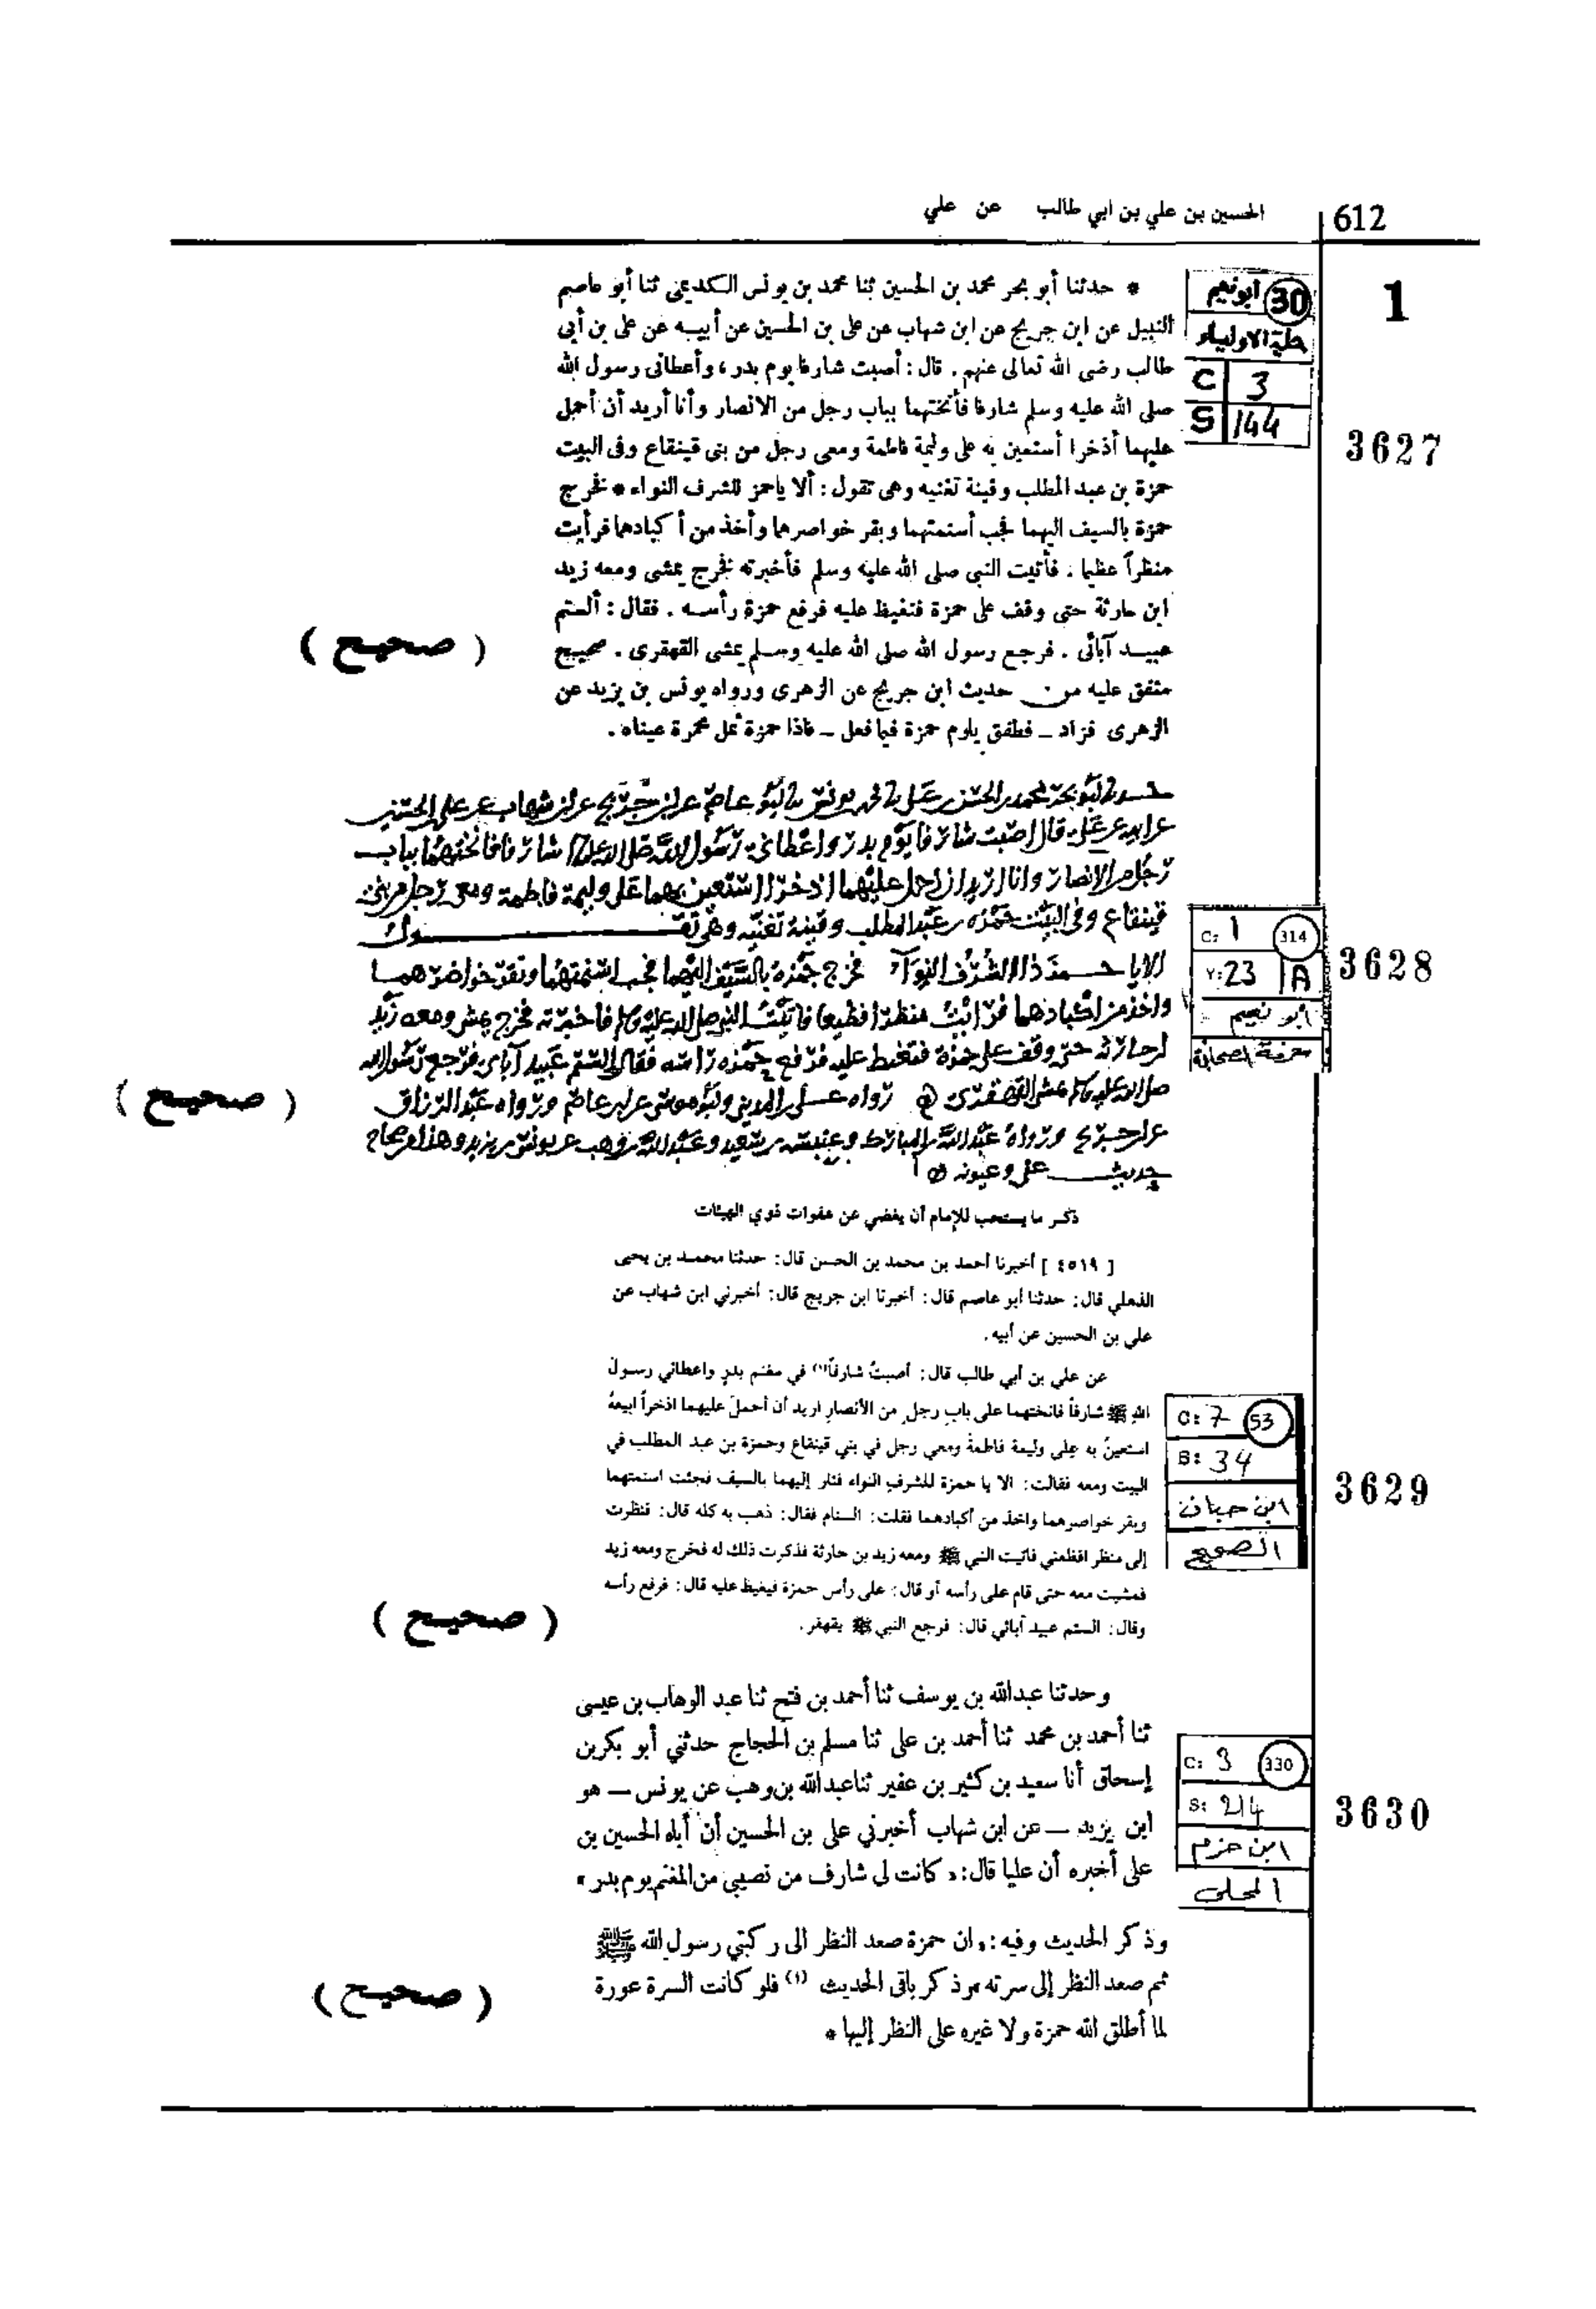 612
الحسين بن علي بن ابي طالب عن علي
1
30 أبو نعيم
حلية الاولياء
C 3
S 144
3627
* حدثنا أبو بحر محمد بن الحسين ثنا محمد بن يونس الكديمى ثنا أبو عاصم
النبيل عن ابن جريج عن ابن شهاب عن على بن الحسين عن أبيه عن على بن أبى
طالب رضى الله تعالى عنهم . قال : أصبت شارفا يوم بدر ، وأعطانى رسول الله
صلى الله عليه وسلم شارفا فأنختهما بباب رجل من الانصار وأنا أريد أن أحمل
عليهما أذخرا أستعين به على وليمة فاطمة ومعى رجل من بنى قينقاع وفى البيت
حمزة بن عبد المطلب وقينة تغنيه وهى تقول : ألا ياحمز للشرف النواء * فخرج
حمزة بالسيف اليهما فجب أسنمتهما وبقر خواصرهما وأخذ من أكبادهما فرأيت
منظراً عظيما . فأتيت النبى صلى الله عليه وسلم فأخبرته فخرج يمشى ومعه زيد
ابن حارثة حتى وقف على حمزة فتغيظ عليه فرفع حمزة رأسه . فقال : ألستم
عبيد آبائى . فرجع رسول الله صلى الله عليه وسلم يمشى القهقرى . صحيح
( صحيح )
متفق عليه من حديث ابن جريج عن الزهرى ورواه يونس بن يزيد عن
الزهرى فزاد ــ فطفق يلوم حمزة فيما فعل ــ فاذا حمزة ثمل محمرة عيناه .
C: 1 314
Y: 23 A
ابو نعيم
معرفة الصحابة
3628
عن ابيه عن علي قال اصبت شارفا يوم بدر واعطاني رسول الله صلى الله عليه شارفا فانختهما بباب
رجل من الانصار وانا اريد ان احمل عليهما اذخرا استعين بهما على وليمة فاطمة ومعي رجل من بني
قينقاع وفي البيت حمزة بن عبد المطلب وقينة تغنيه وهي تقول
الا يا حمز ذا الشرف النواء فخرج حمزة بالسيف اليهما فجب اسنمتهما وبقر خواصرهما
واخذ من اكبادهما فرايت منظرا فظيعا فاتيت النبي صلى الله عليه وسلم فاخبرته فخرج يمشي ومعه زيد
بن حارثة حتى وقف على حمزة فتغيظ عليه فرفع حمزة راسه فقال الستم عبيد آباي فرجع رسول الله
صلى الله عليه وسلم يمشي القهقرى رواه علي بن المديني وابو موسى عن ابي عاصم ورواه عبد الرزاق
( صحيح )
عن ابن جريج ورواه عبد الله بن المبارك وعنبسة بن سعيد وعبد الله بن وهب عن يونس بن يزيد وهذا من صحاح
حديث علي وعيونه
ذكر ما يستحب للإمام أن يغضي عن هفوات ذوي الهيئات
[ ٤٥١٩ ] أخبرنا أحمد بن محمد بن الحسن قال: حدثنا محمد بن يحيى
الذهلي قال: حدثنا أبو عاصم قال: أخبرنا ابن جريج قال: أخبرني ابن شهاب عن
علي بن الحسين عن أبيه.
عن علي بن أبي طالب قال: أصبتُ شارفاً(١) في مغنم بدرٍ واعطاني رسول
الله ﷺ شارفاً فانختهما على باب رجلٍ من الأنصارِ اريد أن أحملَ عليهما اذخراً ابيعهُ
استعينُ به على وليمة فاطمةَ ومعي رجل في بني قينقاع وحمزة بن عبد المطلب في
البيت ومعه فقالت: الا يا حمزة للشرفِ النواء فثار إليهما بالسيف فجئت اسنمتهما
وبقر خواصرهما واخذ من أكبادهما فقلت: السنام فقال: ذهب به كله قال: فنظرت
إلى منظر افظعني فاتيت النبي ﷺ ومعه زيد بن حارثة فذكرت ذلك له فخرج ومعه زيد
فمشيت معه حتى قام على رأسه أو قال: على رأس حمزة فيغيظ عليه قال: فرفع رأسه
وقال: الستم عبيد آبائي قال: فرجع النبي ﷺ يقهقر.
( صحيح )
C: 7 53
B: 34
ابن حبان
الصحيح
3629
وحدثنا عبدالله بن يوسف ثنا أحمد بن فتح ثنا عبد الوهاب بن عيسى
ثنا أحمد بن محمد ثنا أحمد بن على ثنا مسلم بن الحجاج حدثني أبو بكر بن
إسحاق أنا سعيد بن كثير بن عفير ثنا عبد الله بن وهب عن يونس ـــ هو
ابن يزيد ـــ عن ابن شهاب أخبرني على بن الحسين أن أباه الحسين بن
على أخبره أن عليا قال: « كانت لى شارف من نصيبى من المغنم يوم بدر »
C: 3 330
S: 214
ابن حزم
المحلى
3630
وذكر الحديث وفيه : « ان حمزة صعد النظر الى ركبتي رسول الله ﷺ
ثم صعد النظر إلى سرته » وذكر باقى الحديث (١) فلو كانت السرة عورة
( صحيح )
لما أطلق الله حمزة ولا غيره على النظر إليها *